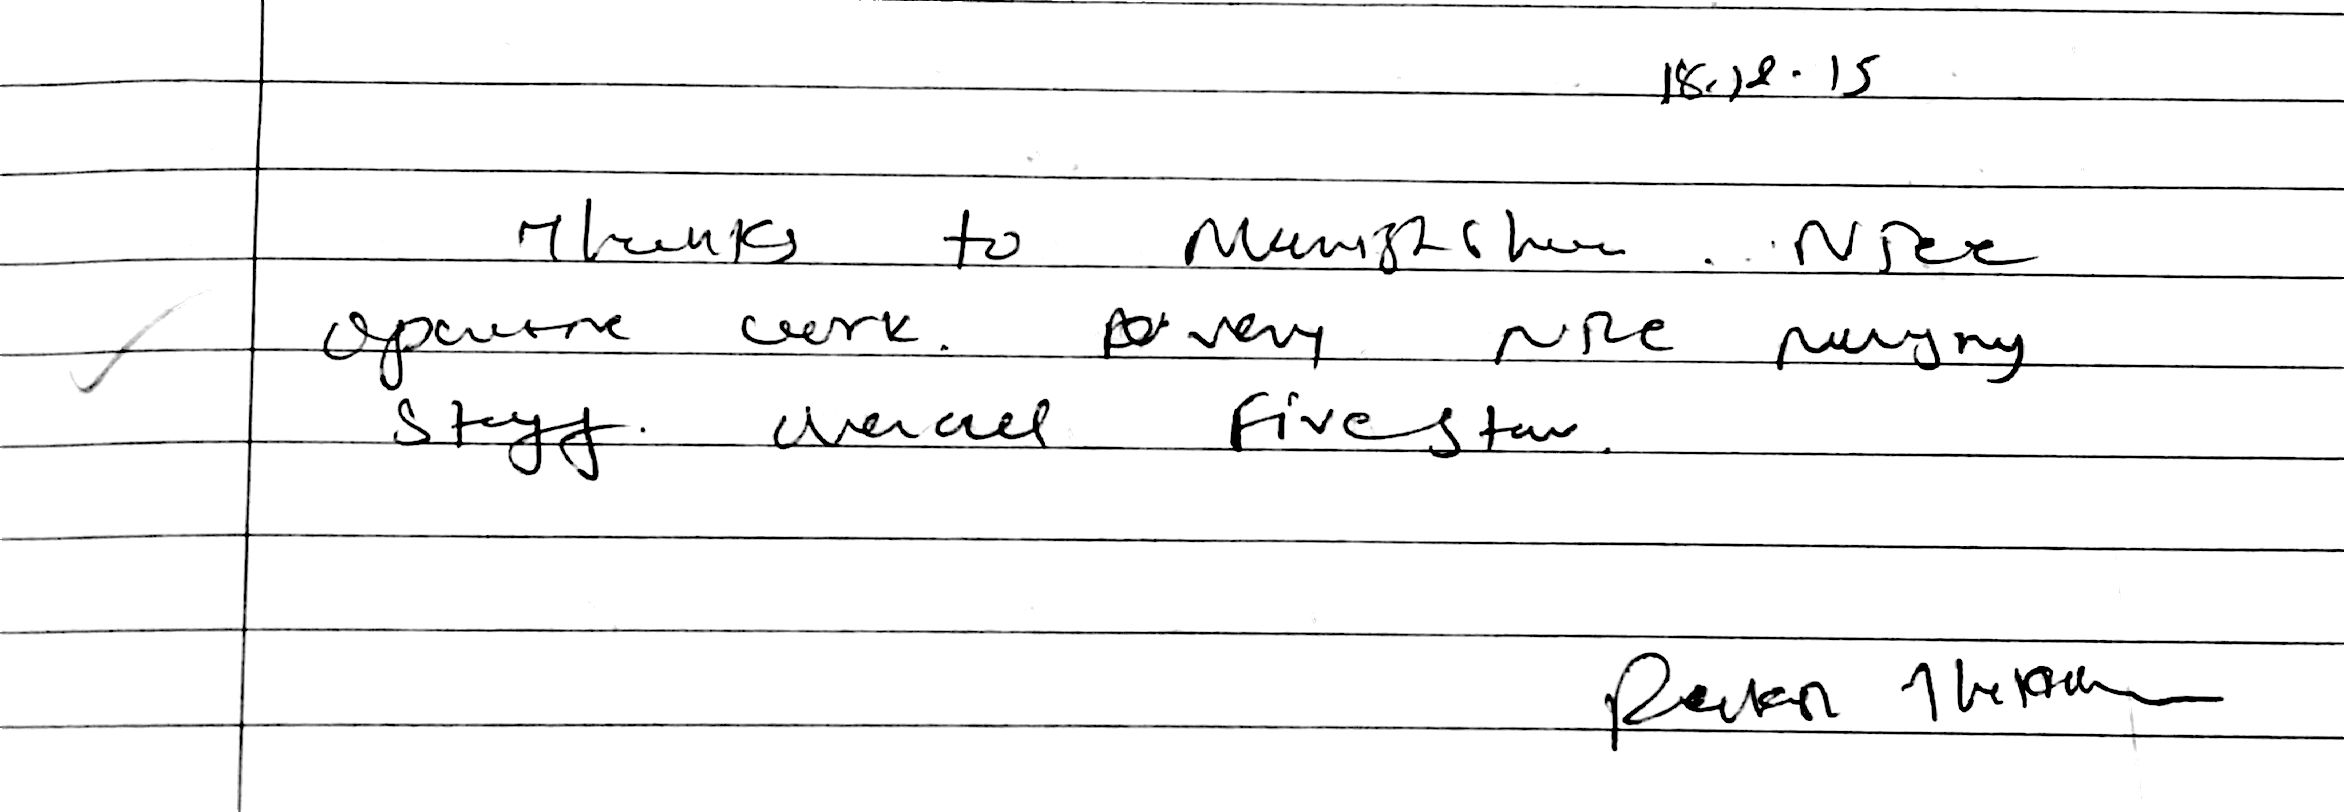 18.12.15
Thanks to Manishbhai . Nice
operative work. very Nice nursing
Staff. overall Five star.